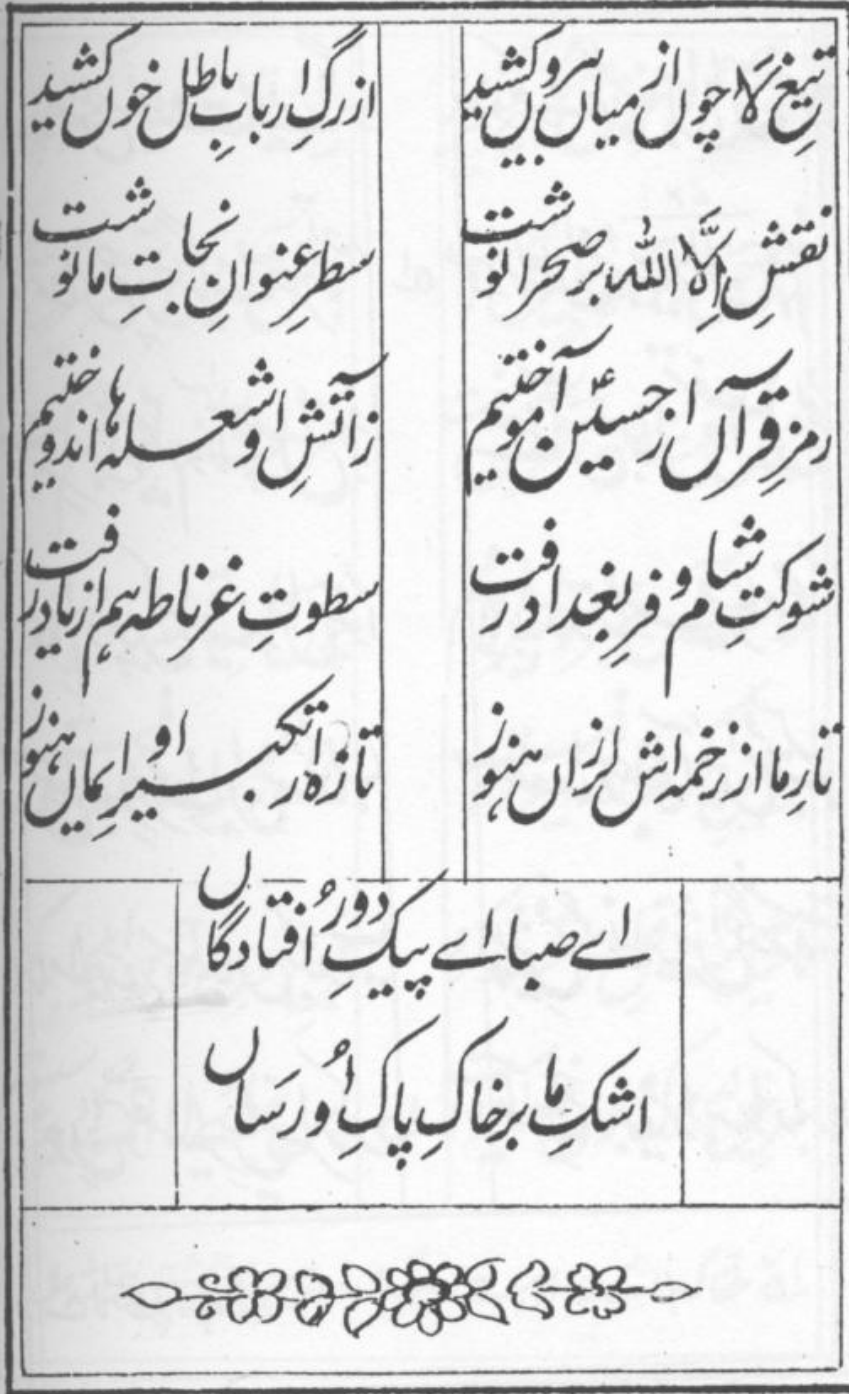 تیغِ لَا چوں از میاں بیروں کشید
از رگِ اربابِ باطل خوں کشید
نقشِ اِلَّا اللہ بر صحرا نوشت
سطرِ عنوانِ نجاتِ ما نوشت
رمزِ قرآں از حسینؑ آموختیم
ز آتشِ او شعلہ ہا اندوختیم
شوکتِ شام و فرِ بغداد رفت
سطوتِ غرناطہ ہم از یاد رفت
تارِ ما از زخمہ اش لرزاں ہنوز
تازہ از تکبیرِ او ایماں ہنوز
اے صبا اے پیکِ دور اُفتادگاں
اشکِ ما بر خاکِ پاکِ اُو رَساں